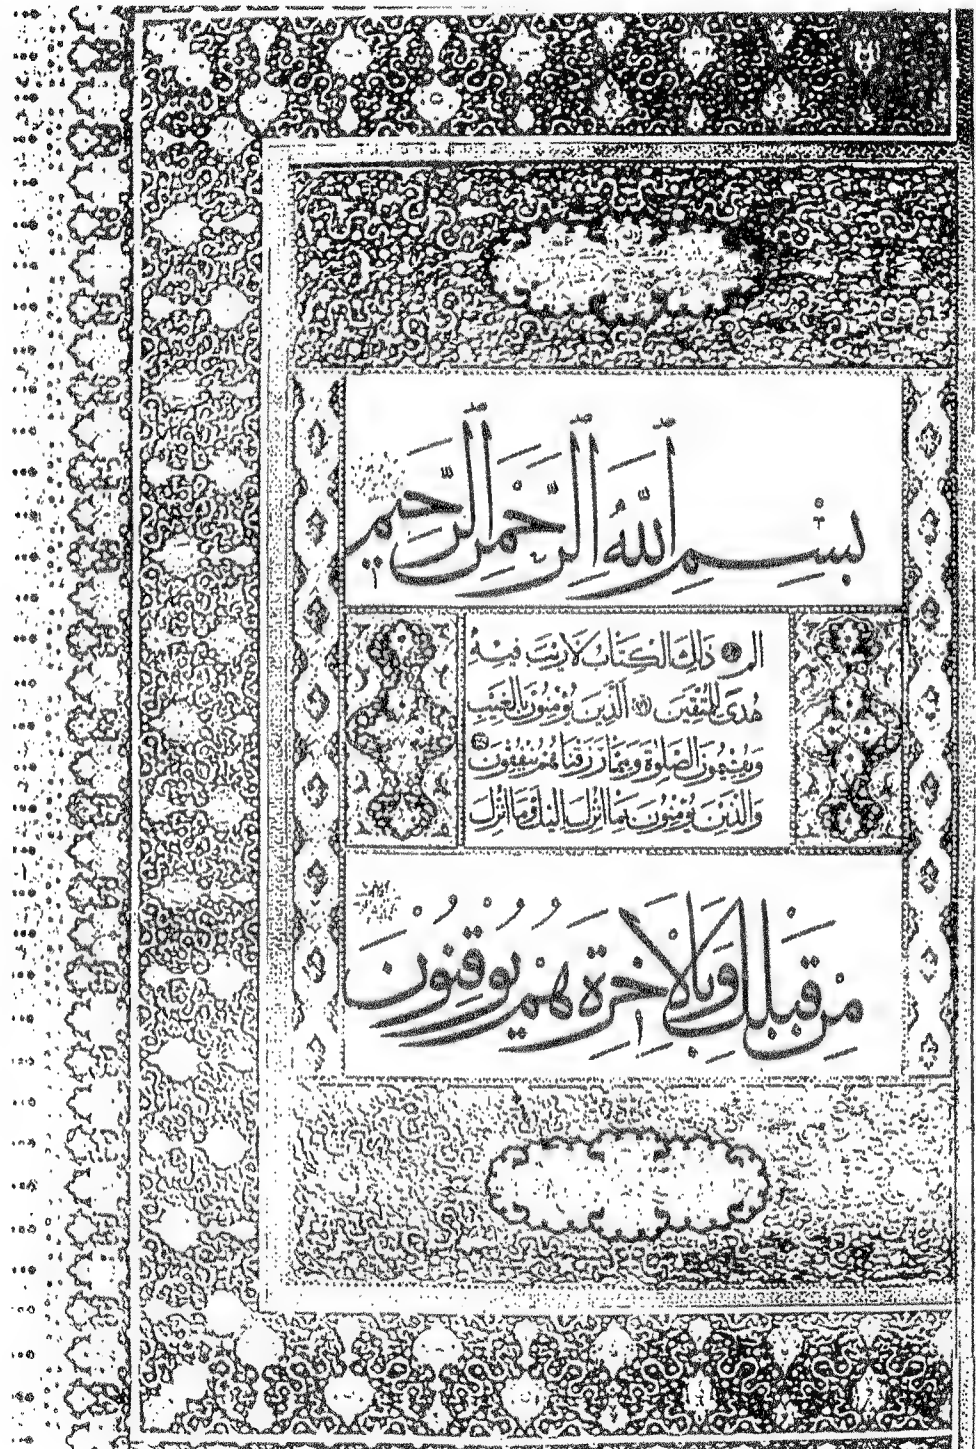 بِسْمِ ٱللَّهِ ٱلرَّحْمٰنِ ٱلرَّحِيمِ
الم ذَالِكَ الْكِتَابُ لَا رَيْبَ فِيهِ
هُدًى لِلْمُتَّقِينَ الَّذِينَ يُؤْمِنُونَ بِالْغَيْبِ
وَيُقِيمُونَ الصَّلٰوةَ وَمِمَّا رَزَقْنَاهُمْ يُنْفِقُونَ
وَالَّذِينَ يُؤْمِنُونَ بِمَا أُنْزِلَ إِلَيْكَ وَمَا أُنْزِلَ
مِنْ قَبْلِكَ وَبِالْاٰخِرَةِ هُمْ يُوقِنُونَ